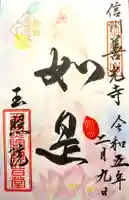 信州善光寺
令和五年
二月九日
如是
玉照院